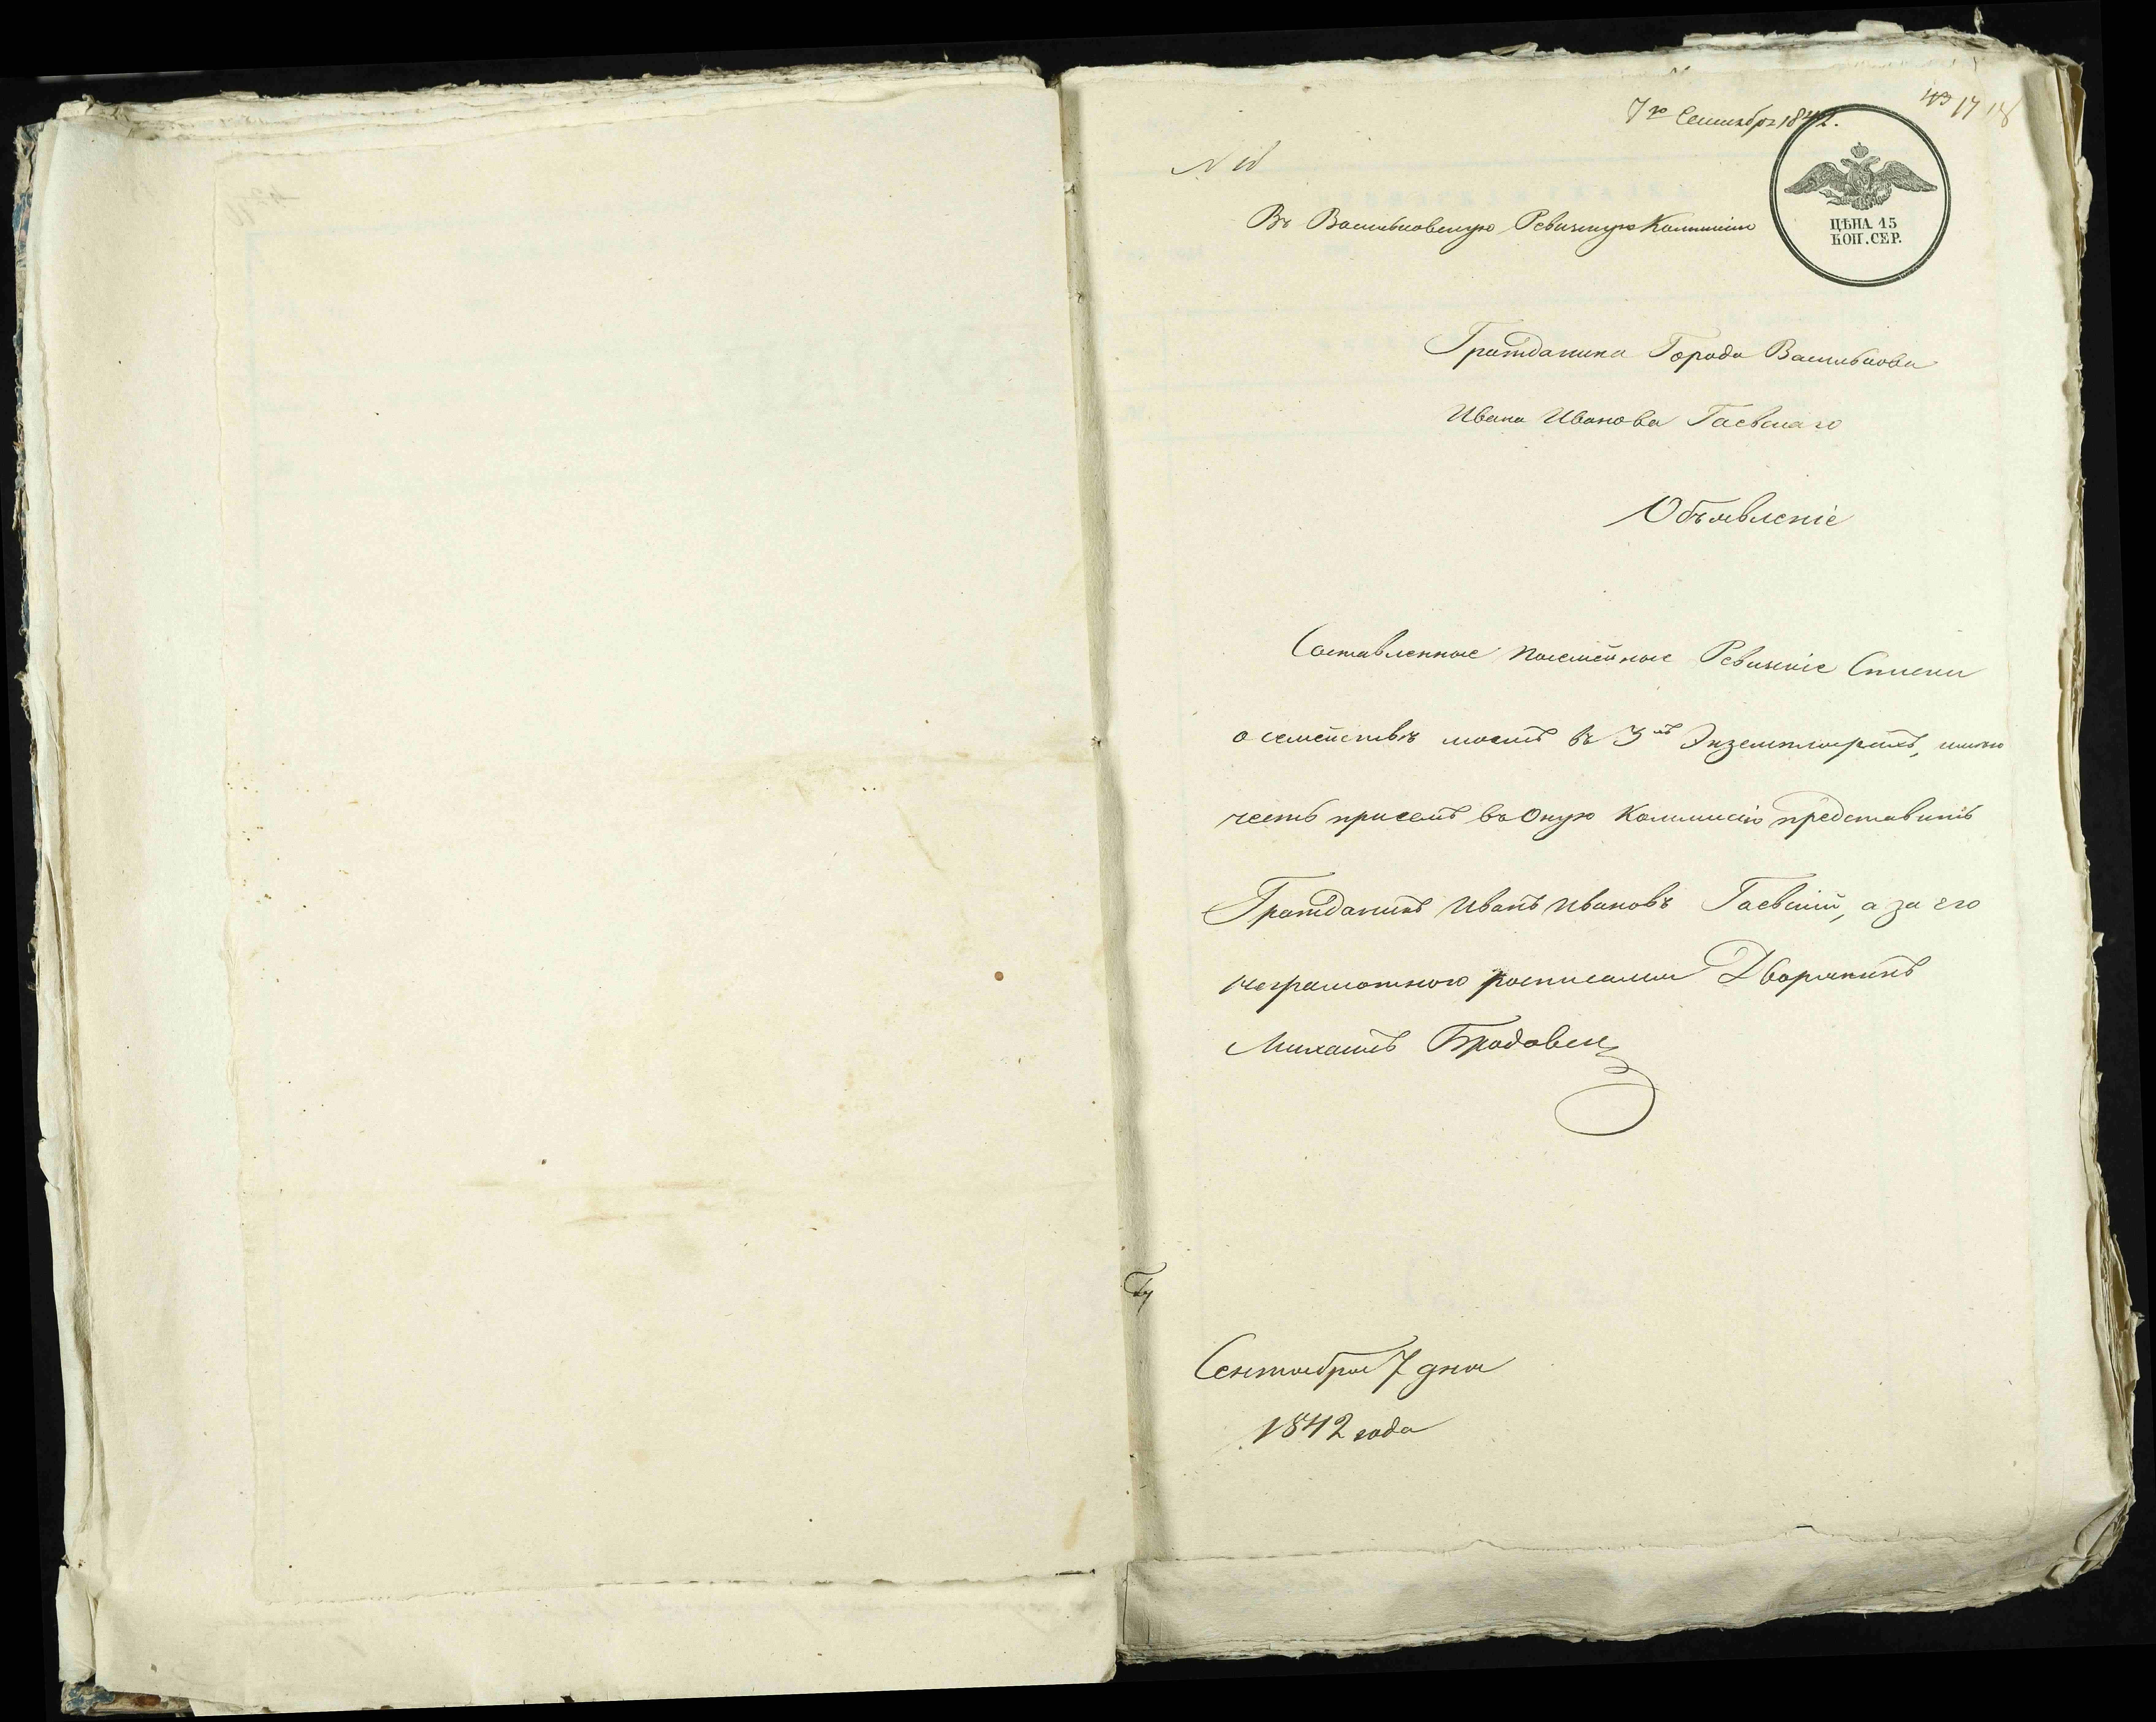 7го Сентября 1842.
17 18
Въ Васильковскую Ревизкую Коммисію
ЦѢНА 15
КОП. СЕР.
Гражданина Города Василькова
Ивана Иванова Гаевскаго
Объявленіе
Составленные посемейные Ревизкіе Списки
о семействѣ моемъ въ 3хъ Экземплярахъ, имѣю
честь присемъ въ Оную Коммисію представить
Гражданинъ Иванъ Ивановъ Гаевскій, а за его
неграмотного росписался Дворянинъ
Михаилъ Бродовск
Сентября 7 дня
1842 года